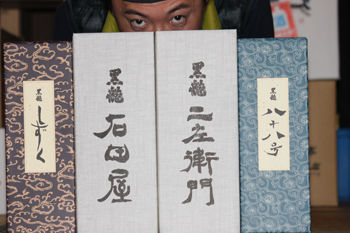 黒龍
しずく
黒龍
石田屋
黒龍
二左衛門
黒龍
八十八号